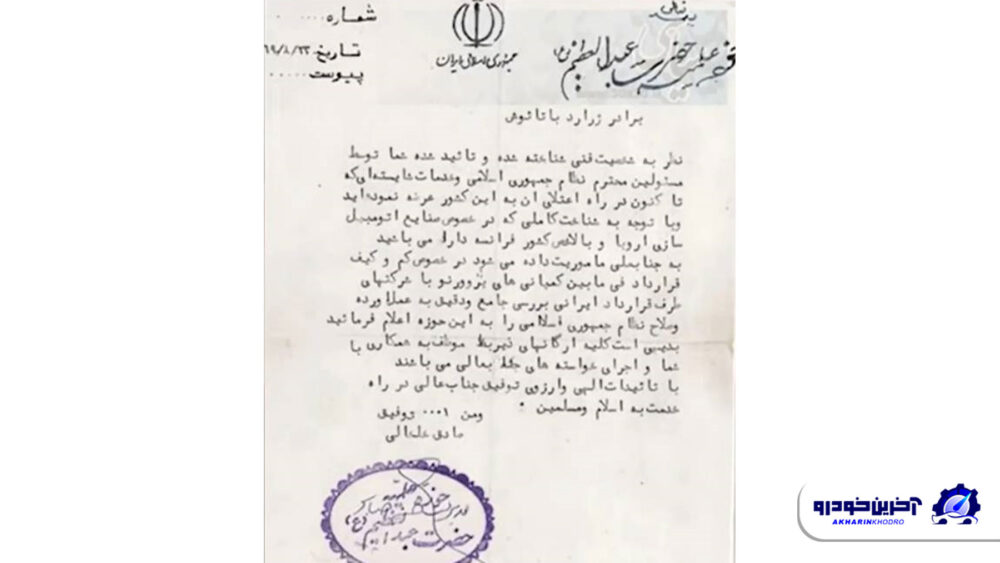 شماره ....
تاریخ ۶۹/۸/۲۳
پیوست ....
جمهوری اسلامی ایران
حضرت عبدالعظیم (ع)
برادر ژرارد باتائوش
نظر به شخصیت فنی شناخته شده و تائید شده شما توسط
مسئولین محترم نظام جمهوری اسلامی وخدمات شایسته‌ای که
تا کنون در راه اعتلای آن به این کشور عرضه نموده‌اید
وبا توجه به شناخت کاملی که در خصوص صنایع اتومبیل
سازی اروپا و بالاخص کشور فرانسه دارا می باشید
به جنابعالی ماموریت داده می شود در خصوص کم و کیف
قرارداد فی مابین کمپانی های پژوورنو با شرکتهای
طرف قرارداد ایرانی بررسی جامع ودقیق به عمل آورده
وصلاح نظام جمهوری اسلامی را به این حوزه اعلام فرمائید
بدیهی است کلیه ارگانهای ذیربط موظف به همکاری با
شما و اجرای خواسته های جنابعالی می باشند
با تائیدات الهی وآرزوی توفیق جناب عالی در راه
خدمت به اسلام ومسلمین .
ومن ا... توفیق
صادق خلخالی
حضرت عبدالعظیم (ع)
آخرین خودرو
AKHARINKHODRO